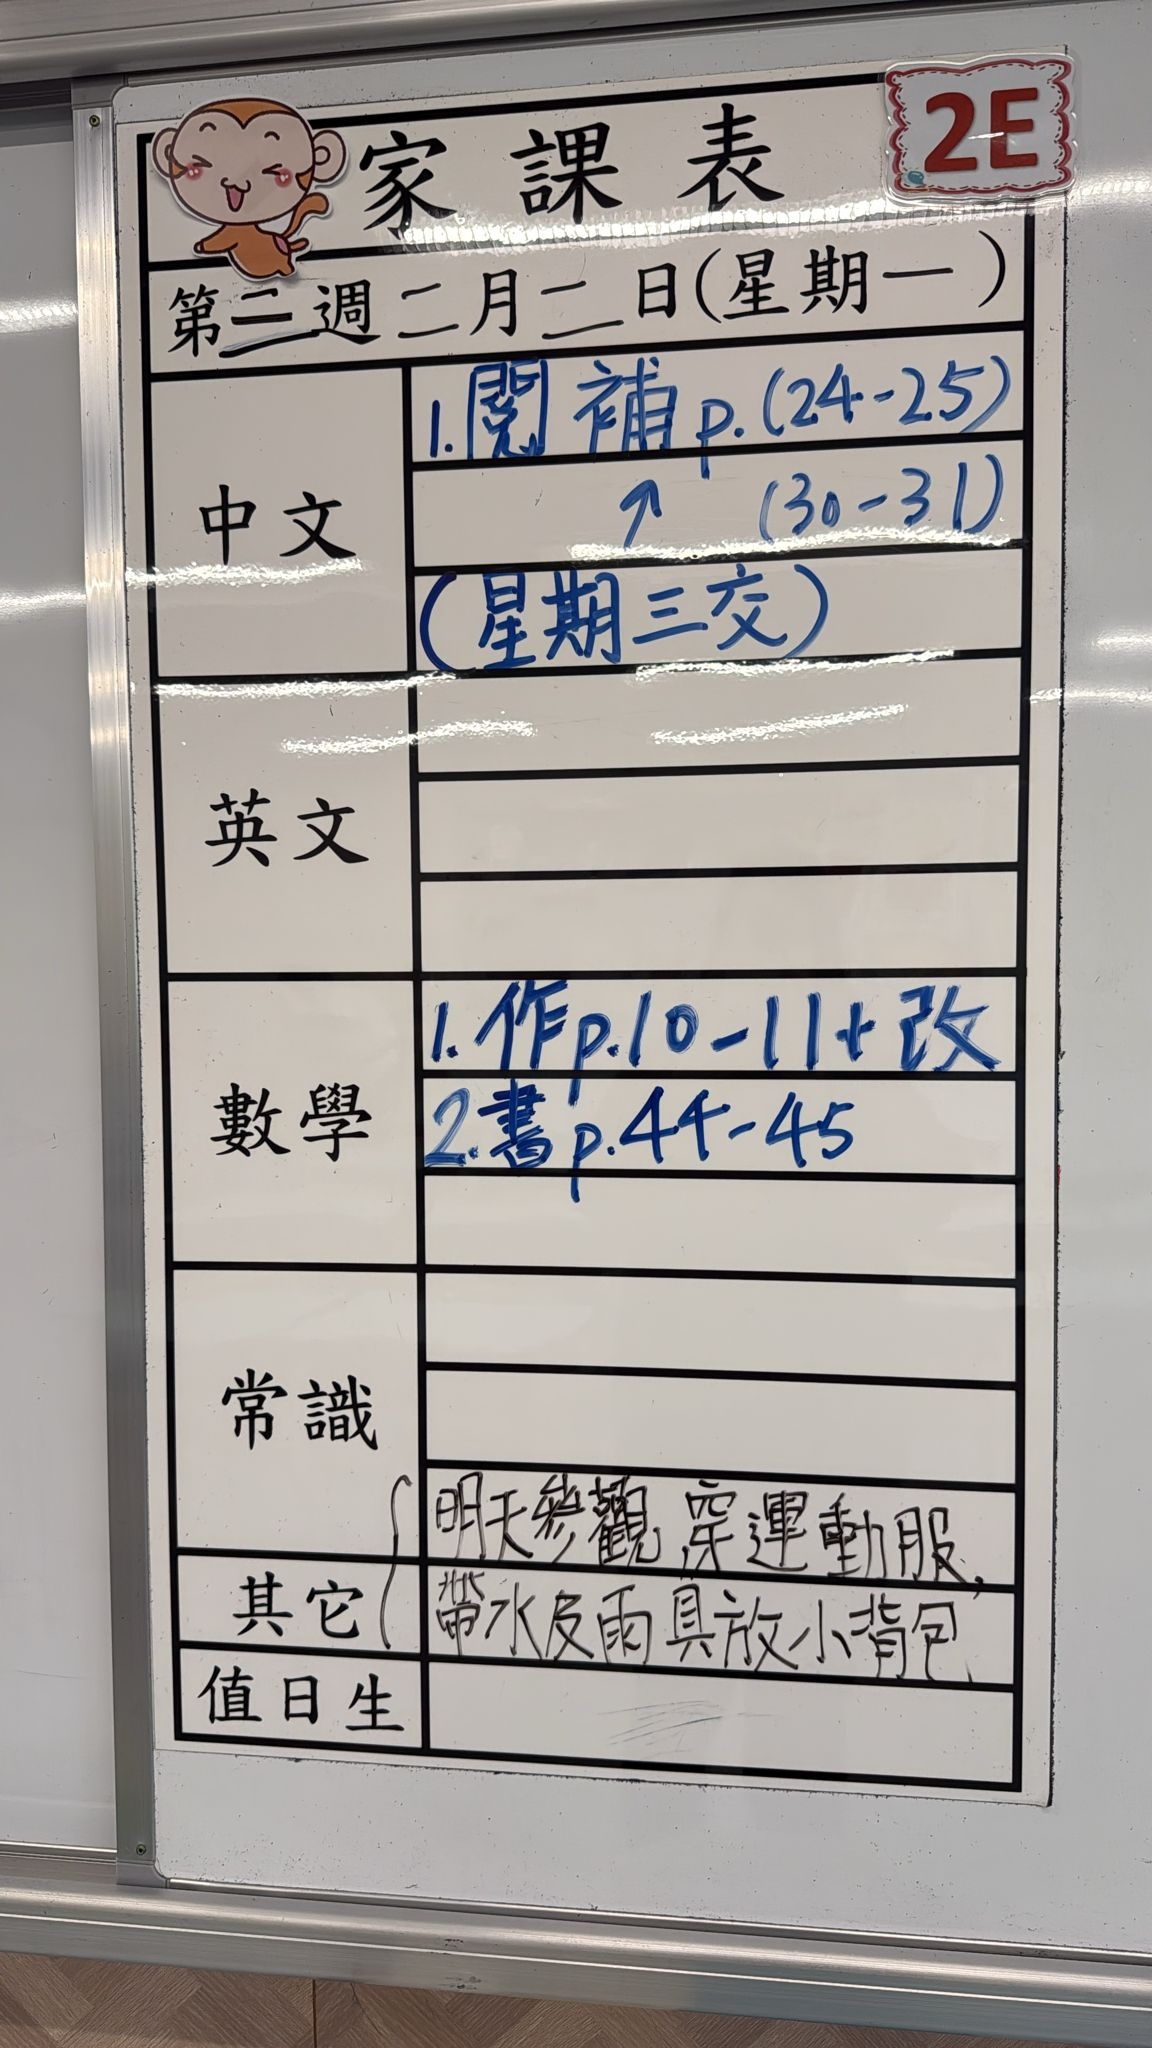 家課表
2E
第二週二月二日(星期一)
中文
1.閱補p.(24-25)
↑ (30-31)
(星期三交)
英文
數學
1.作p.10-11+改
2.書p.44-45
常識
明天參觀,穿運動服,
其它
帶水及雨具放小背包
值日生